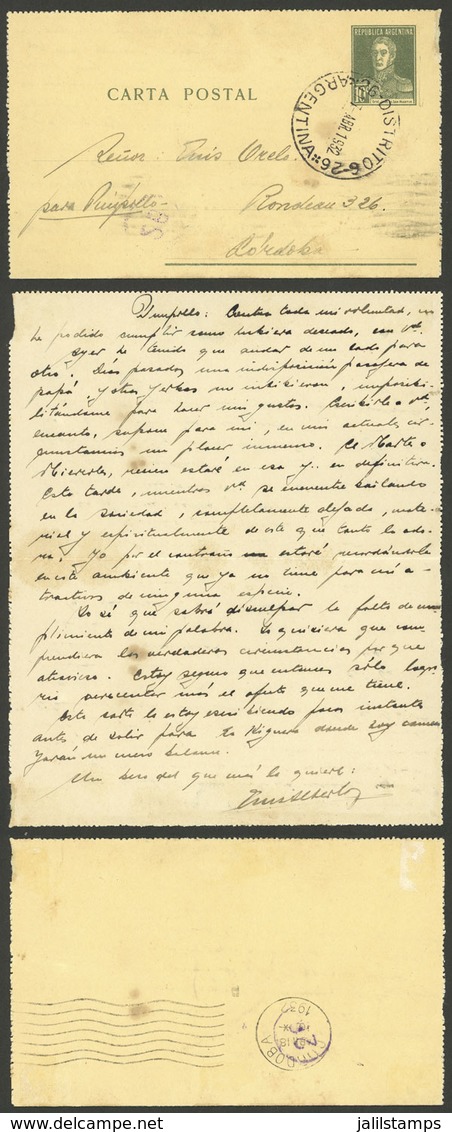 REPUBLICA ARGENTINA
CARTA POSTAL
DISTRITO 26 ARGENTINA
ABR 1932
Señor: Luis
para Pimpollo
Rondeau 326
Córdoba
Pimpollo: Contra toda mi voluntad, no
he podido cumplir como hubiera deseado, con Vd.
Ayer he tenido que andar de un lado para
otro. Dias pasados una indisposición pasajera de
papá y otras yerbas me hicieron, imposibi-
litándome para hacer mi gusto. Escribirle a Vd,
encanto, supone para mi, en mis actuales cir-
cunstancias un placer inmenso. El Martes o
Miercoles, recien estaré en esa y.. en definitiva.
Esta tarde, mientras Vd. se encuentre bailando
en la sociedad, completamente alejada, mate-
rial y espiritualmente de este que tanto la ado-
ra. Yo por el contrario estaré recordándola
en este ambiente que ya no tiene para mi a-
tractivos de ninguna especie.
Yo sé que sabrá disculpar la falta de cum-
plimiento de mi palabra. Yo quisiera que com-
prendiera las verdaderas circunstancias por que
atravieso. Estoy seguro que entonces sólo logra-
ria acrecentar más el afecto que me tiene.
Esta carta la estoy escribiendo pocos instantes
antes de salir para la Higuera donde
Un beso del que más la quiere:
Luis Alberto
CORDOBA
1932
jalilstamps
www.delcampe.net